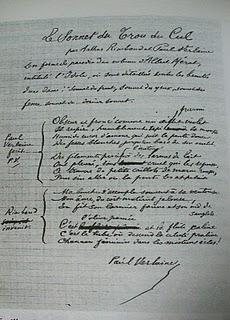 Le Sonnet du Trou du Cul
par Arthur Rimbaud et Paul Verlaine
En forme de parodie d'un volume d'Albert Mérat,
intitulé l'Idole, où sont détaillées toutes les beautés
d'une dame: Sonnet du front, Sonnet des yeux, sonnet des
fesses, sonnet du dernier sonnet.
Paul
Verlaine
fecit
P.V.
Obscur et froncé comme un œillet violet
Il respire, humblement tapi parmi la mousse
Humide encor d'amour qui suit la pente douce
Des fesses blanches jusqu'au
Des filaments pareils à des larmes de lait
Ont pleuré, sous
À travers de petits caillots de marne rousse,
Pour s'en aller où la pente les appelait.
Rimbaud
invenit
Ma bouche s'accoupla souvent à sa ventouse
Mon âme, du coït matériel jalouse,
En fit son larmier fauve et son nid de
sanglots
C'est l'olive pâmée et la flûte câline
C'est le tube où descend la céleste praline
Chanaan féminin dans les moiteurs éclos!
Paul Verlaine